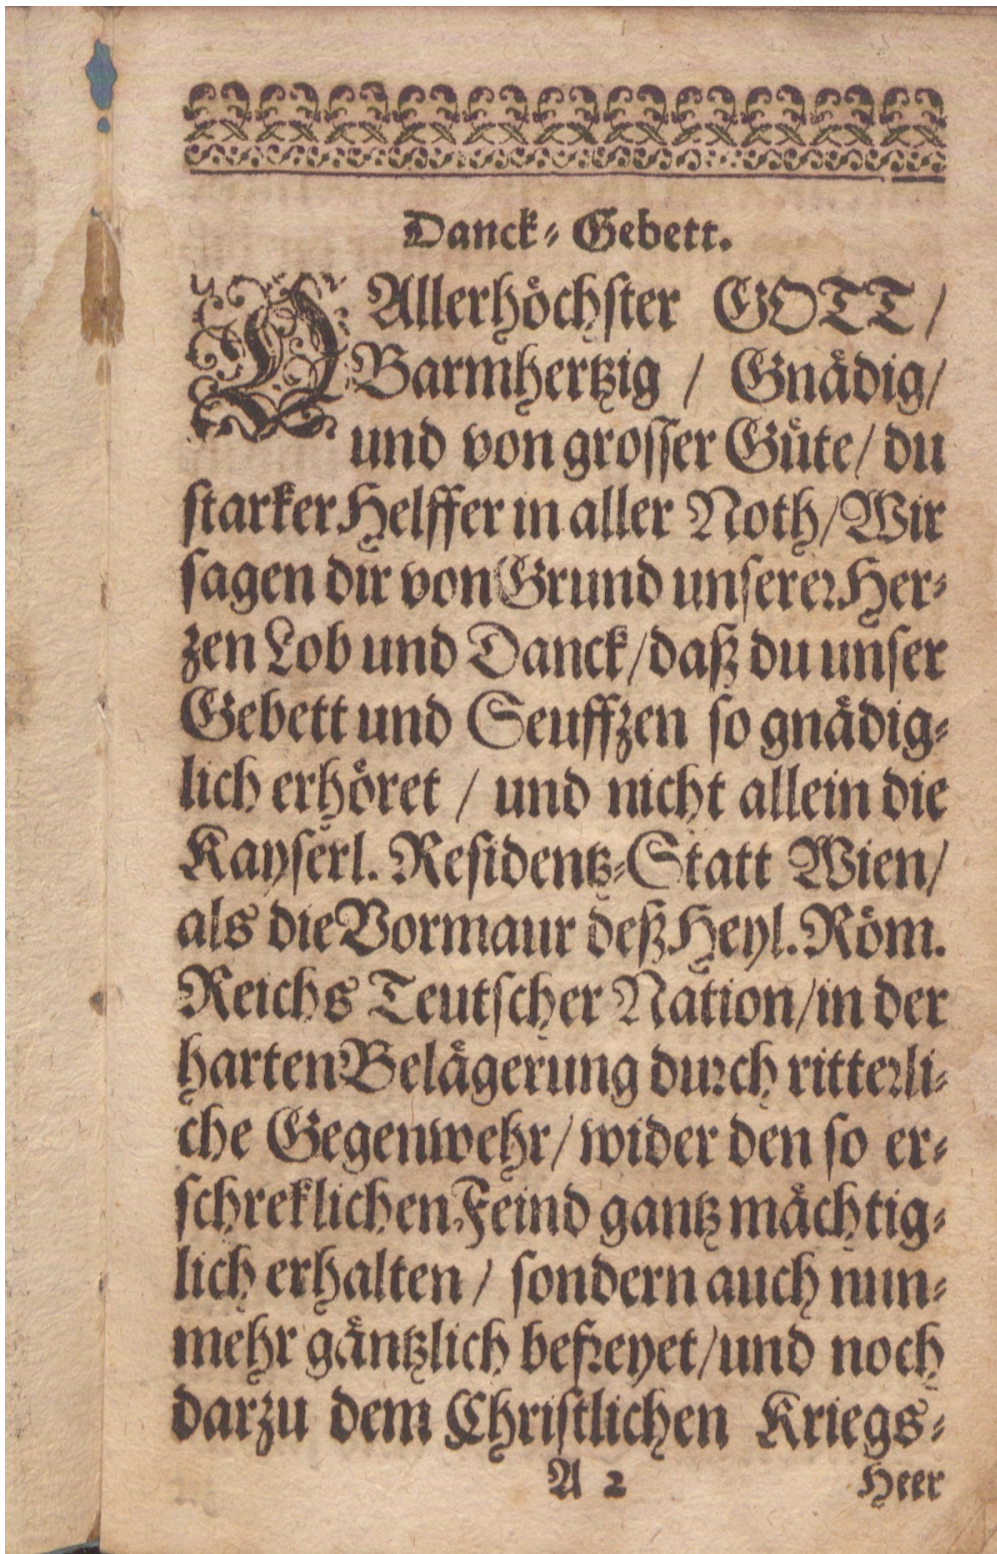 Danck-Gebett.
O Allerhöchster GOTT /
Barmhertzig / Gnädig/
und von grosser Güte/ du
starker Helffer in aller Noth/Wir
sagen dir von Grund unserer Her-
zen Lob und Danck/daß du unser
Gebett und Seuffzen so gnädig-
lich erhöret / und nicht allein die
Kayserl. Residentz-Statt Wien/
als die Vormaur deß Heyl. Röm.
Reichs Teutscher Nation/in der
harten Belägerung durch ritterli-
che Gegenwehr/ wider den so er-
schreklichen Feind gantz mächtig-
lich erhalten / sondern auch nun-
mehr gäntzlich befreyet/und noch
darzu dem Christlichen Kriegs-
A 2 Heer